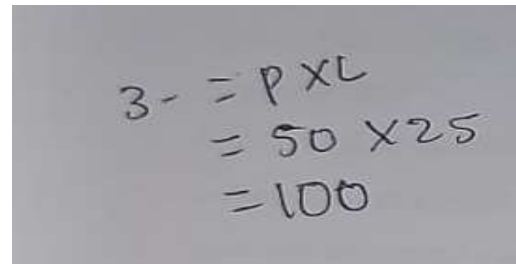 3- = P X L
= 50 X 25
= 100